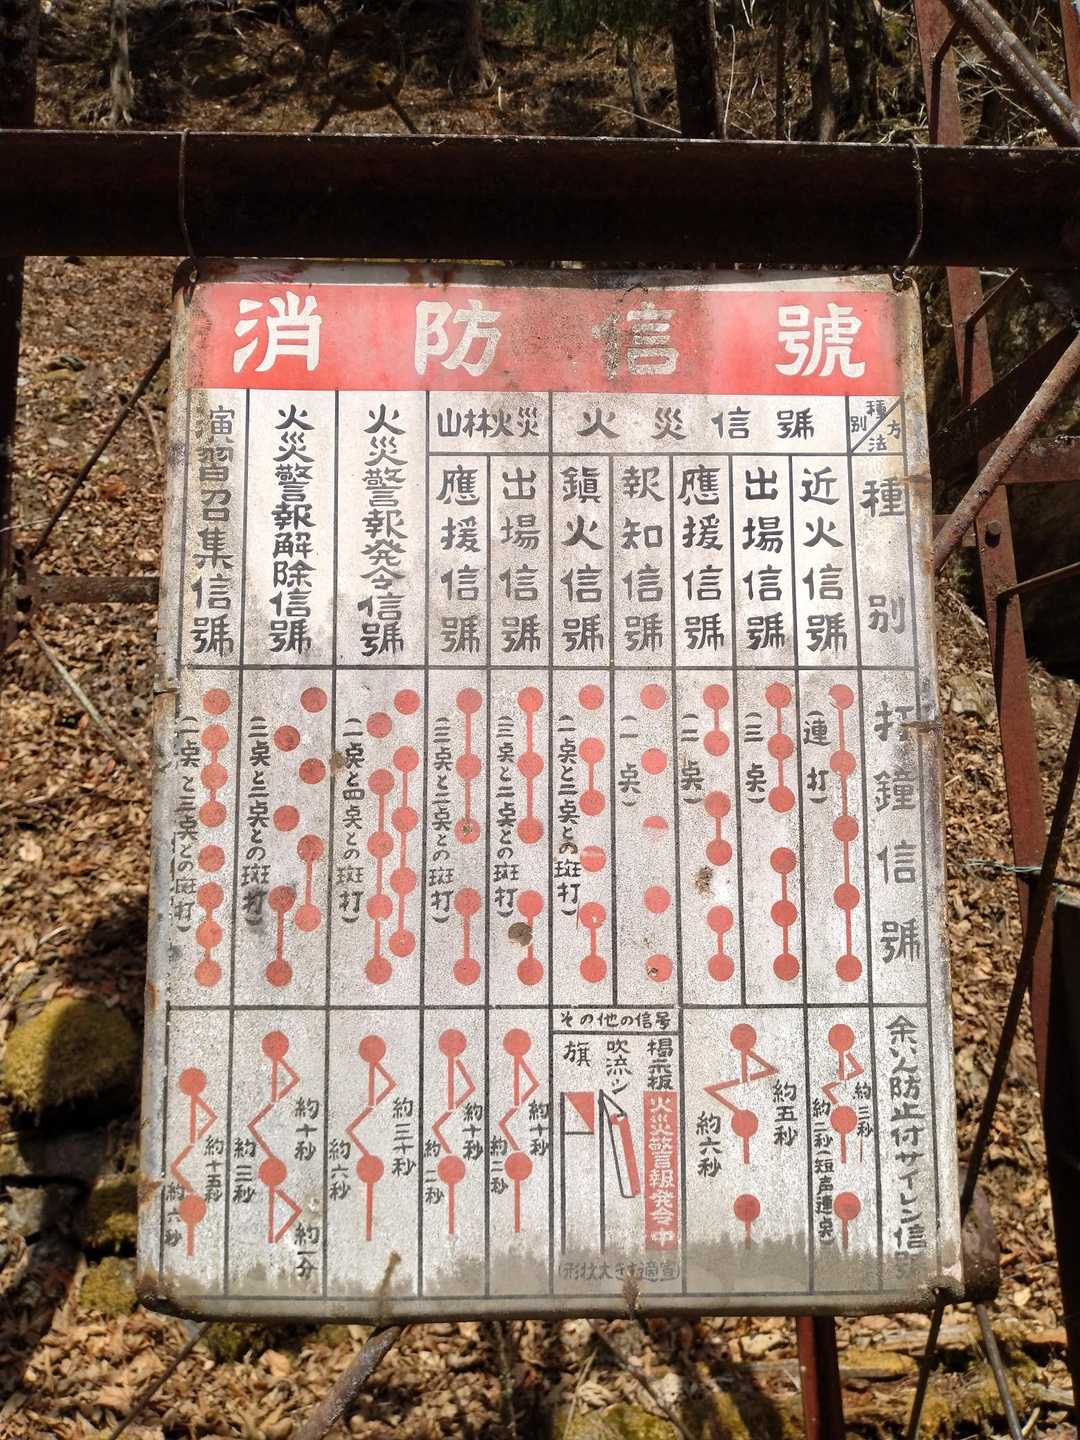 消防信號
種別
方法
種別
打鐘信號
余いん防止付サイレン信号
火災信號
近火信號
(連打)
約三秒
約二秒(短声連点)
出場信號
(三点)
應援信號
(二点)
約五秒
約六秒
報知信號
(一点)
鎮火信號
(一点と二点との斑打)
その他の信号
掲示板
火災警報発令中
吹流シ
旗
(形状大きさ適宜)
山林火災
出場信號
(三点と二点との斑打)
約十秒
約二秒
應援信號
(三点と二点との斑打)
約十秒
約二秒
火災警報発令信號
(一点と四点との斑打)
約三十秒
約六秒
火災警報解除信號
(一点と二点との斑打)
約十秒
約三秒
約一分
演習召集信號
(一点と三点との斑打)
約十五秒
約六秒